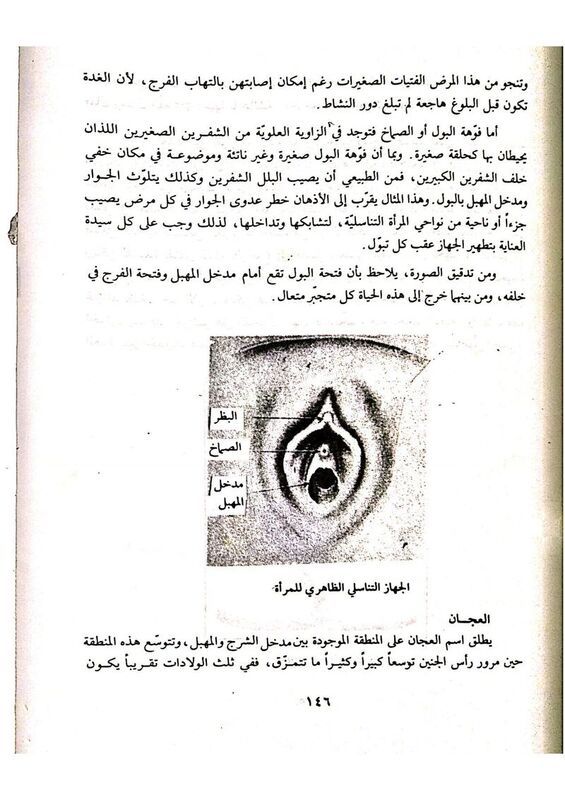 وتنجو من هذا المرض الفتيات الصغيرات رغم إمكان إصابتهن بالتهاب الفرج، لأن الغدة
تكون قبل البلوغ هاجعة لم تبلغ دور النشاط.
أما فوّهة البول أو الصماخ فتوجد في الزاوية العلويّة من الشفرين الصغيرين اللذان
يحيطان بها كحلقة صغيرة. وبما أن فوّهة البول صغيرة وغير ناتئة وموضوعة في مكان خفي
خلف الشفرين الكبيرين، فمن الطبيعي أن يصيب البلل الشفرين وكذلك يتلوّث الجوار
ومدخل المهبل بالبول. وهذا المثال يقرّب إلى الأذهان خطر عدوى الجوار في كل مرض يصيب
جزءاً أو ناحية من نواحي المرأة التناسليّة، لتشابكها وتداخلها، لذلك وجب على كل سيدة
العناية بتطهير الجهاز عقب كل تبوّل.
ومن تدقيق الصورة، يلاحظ بأن فتحة البول تقع أمام مدخل المهبل وفتحة الفرج في
خلفه، ومن بينهما خرج إلى هذه الحياة كل متجبّر متعال.
البظر
الصماخ
مدخل
المهبل
الجهاز التناسلي الظاهري للمرأة
العجـان
يطلق اسم العجان على المنطقة الموجودة بين مدخل الشرج والمهبل، وتتوسّع هذه المنطقة
حين مرور رأس الجنين توسعاً كبيراً وكثيـراً ما تتمـزّق، ففي ثلث الولادات تقريبـاً يكـون
١٤٦